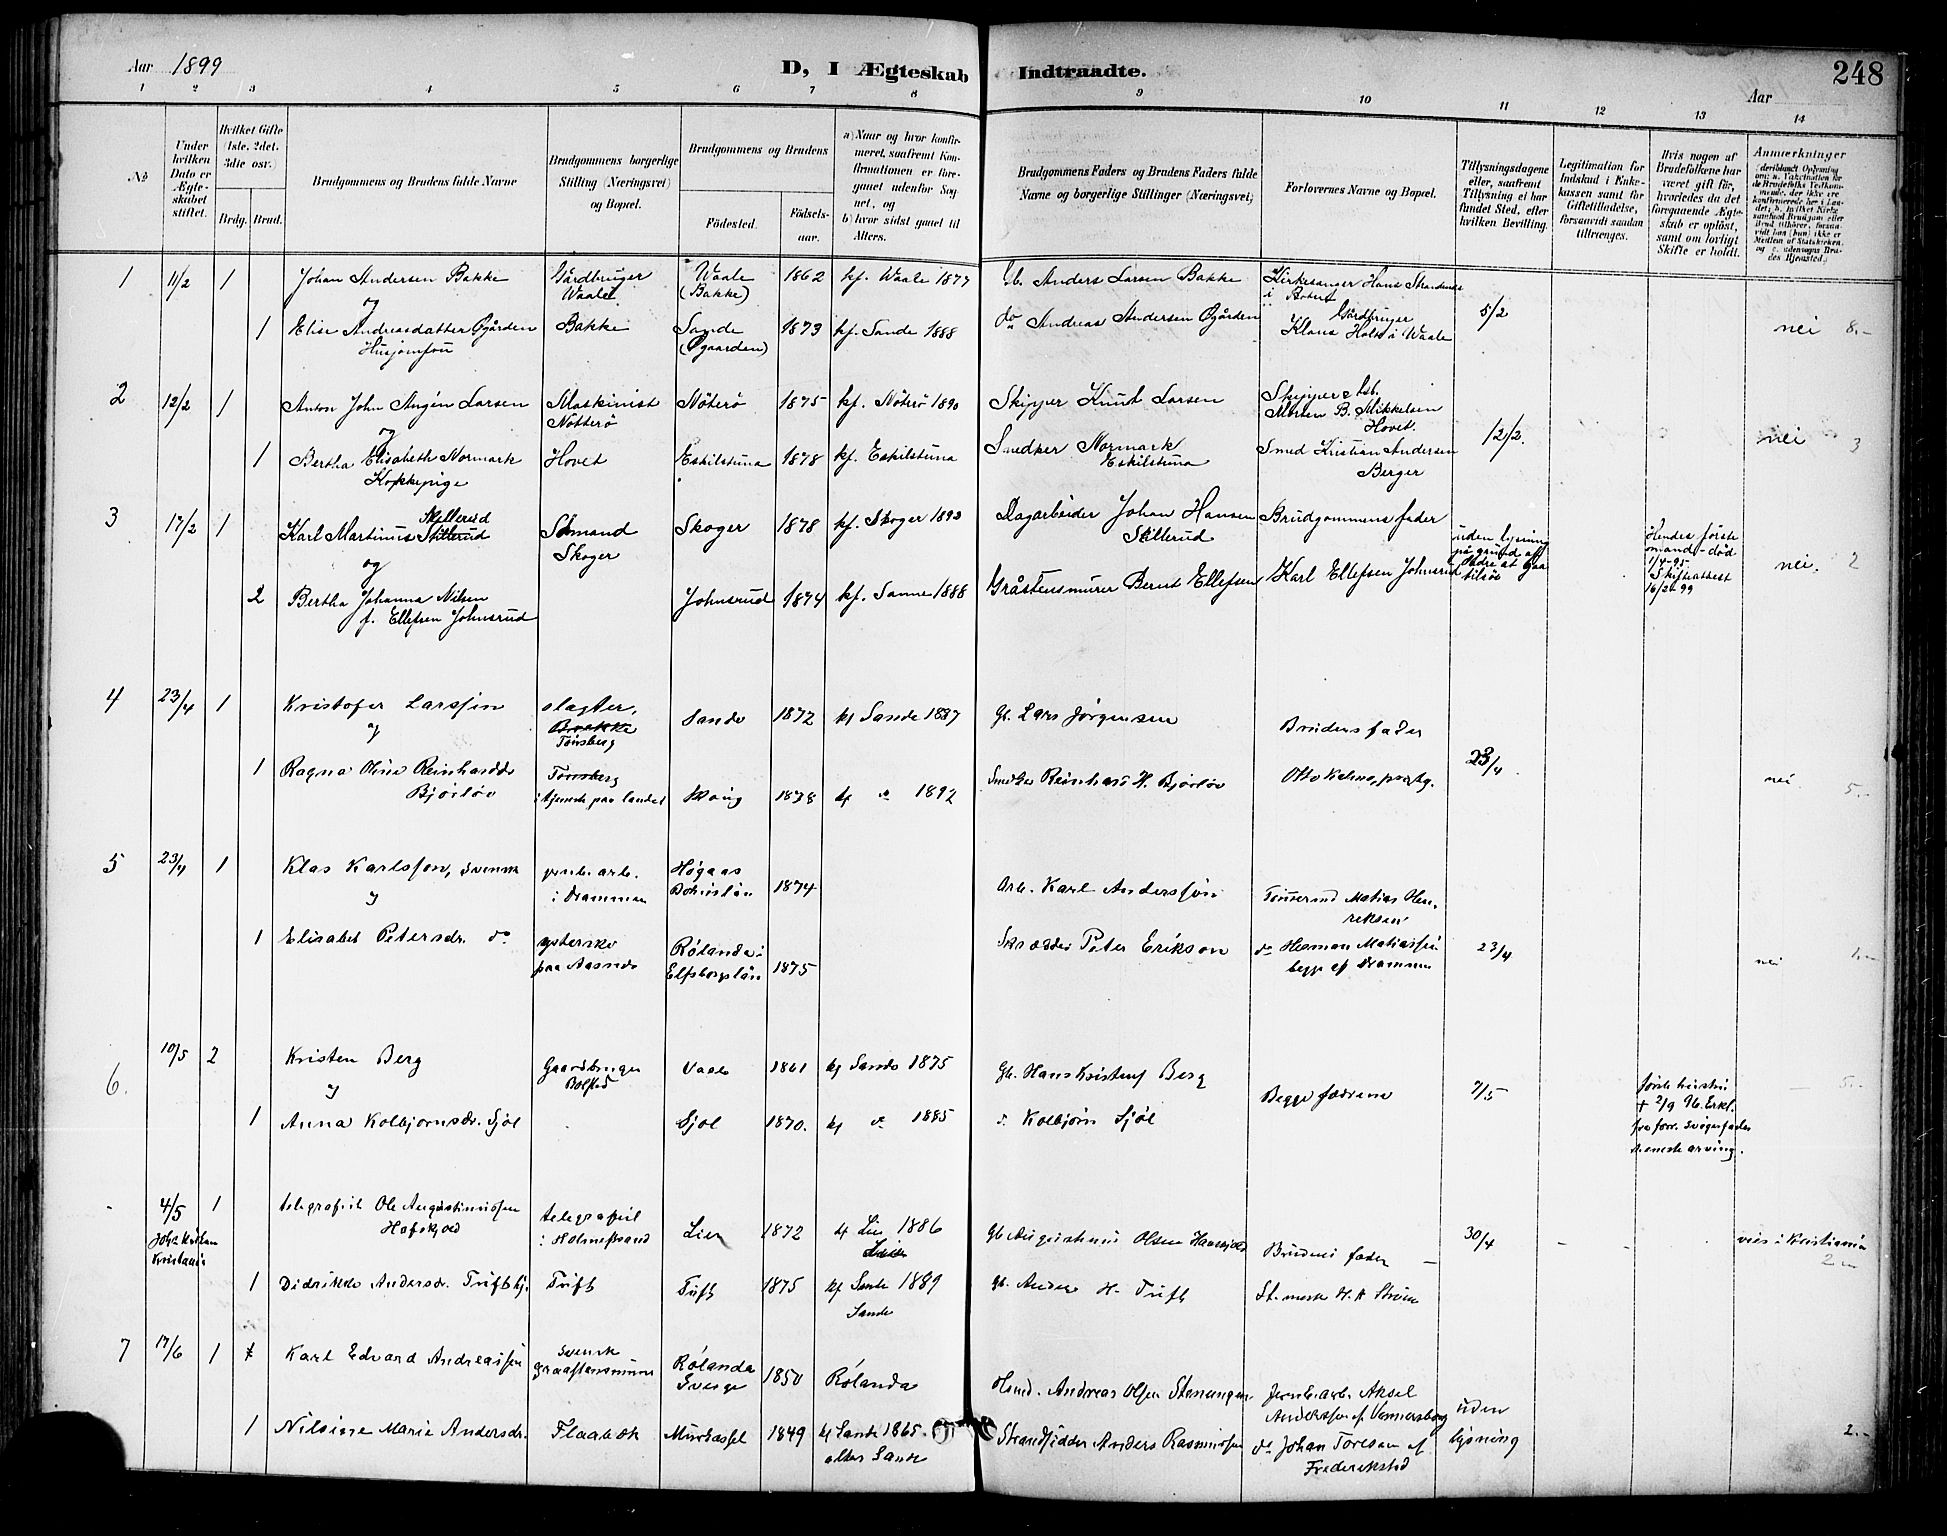 Aar 1899
D, I Ægteskab Indtraadte.
248
Aar
1 2 3 4 5 6 7 8 9 10 11 12 13 14
No
Under hvilken Dato er Ægteskabet stiftet.
Hvilket Gifte (1ste, 2det, 3die osv.)
Brdg. Brud.
Brudgommens og Brudens fulde Navne
Brudgommens borgerlige Stilling (Næringsvei) og Bopæl.
Brudgommens og Brudens
Fødested.
Fødselsaar.
a) Naar og hvor konfirmeret, saafremt Konfirmationen er foregaaet udenfor Sognet, og
b) hvor sidst gaaet til Alters.
Brudgommens Faders og Brudens Faders fulde Navne og borgerlige Stillinger (Næringsvei)
Forlovernes Navne og Bopæl.
Tillysningsdagene eller, saafremt Tillysning ei har fundet Sted, efter hvilken Bevilling.
Legitimation for Indskud i Enkekassen samt for Giftetilladelse, forsaavidt saadan tiltrænges.
Hvis nogen af Brudefolkene har været gift før, hvorledes da det foregaaende Ægteskab er opløst, samt om lovligt Skifte er holdt.
Anmerkninger
1 11/2 1 Johan Andersen Bakke Gårdbruger Waale Waale (Bakke) 1862 kf. Waale 1877 Gb. Anders Larsen Bakke Kirkesanger Hans Strandenes i Botert
og
1 Elise Andreasdatter Øgården Bakke Sande (Øgaarden) 1873 kf. Sande 1888 do Andreas Andersen Øgården Gårdbruger Klaus Holm i Waale 5/2 nei 8.-
Husjomfru
2 12/2 1 Anton John Angén Larsen Maskinist Nötterö Nöterö 1875 kf. Nöterö 1890 Skipper Knut Larsen Skipper Morten B. Mikkelsen Hovet.
og
1 Bertha Elisabeth Normark Hovet Eskilstuna 1878 kf. Eskilstuna Smedker Normark Eskilstuna Smed Kristian Andersen Berger 12/2. nei 3
Kokkepige
3 17/2 1 Karl Martinius Skillerud Sömand Skoger Skoger 1878 kf. Skoger 1893 Dagarbeider Johan Hansen Skillerud Brudgommens fader uden lysning på grund af
og
2 Bertha Johanna Nilsen f. Ellefsen Johnsrud Johnsrud 1874 kf. Sanne 1888 Gråstensmurer Bernt Ellefsen Karl Ellefsen Johnsrud
Hendes förste mand död 1/4-95. Skifteattest 16/2 99 nei. 2
4 23/4 1 Kristofer Larssen slagter, Tønsberg Sande 1872 kf Sande 1887 Gb. Lars Jørgensen Brudens fader
og
1 Ragna Oline Reinhardsdr Bjørløv Tønsberg i tjeneste paa landet Skoug 1878 kf do 1892 Smedker Reinhard H. Bjørløv 23/4. nei. 5.-
5 23/4 1 Klas Karlsson, svensk i Drammen Høgaas Bohuslän 1874 Arb. Karl Anderssøn Matias Henriksen
og
1 Elisabet Petersdr. do paa Aasnes Rølanda i Elfsborgslän 1875 Skrædder Peter Erikson do Herman Matiassen begge af Drammen 23/4 nei 1.-
6. 10/5 2 Kristen Berg Gaardbruger Bolstad Vaale 1861 kf Sande 1875 Gb. Hans Kristenf Berg
og
1 Anna Kolbjørnsdr. Sjøl Sjøl 1870. kf do 1885 do Kolbjørn Sjøl Begge fædrene 7/5 5.-
første hustru † 2/9 96. Erkl. fra forr. svigerfader eneste arving.
- 4/5 1 telegrafist Ole Augustinussen Hofskjoed telegrafist i Holmestrand Lier 1872 kf Lier 1886 Lier Gb Augustinus Olsen Brudens fader 30/4 - - vies i Kristiania 2.-
Kristiania
1 Didrikke Andersdr. Tuftbj. Tuft Tuft 1875 kf Sande 1889 Sande gb. Anders H. Tuft St. mester H. A. Strøm
7 17/6 1 Karl Edvard Andreassen svensk graastensmurer Rølanda Sverige 1850 Rølanda Husmd. Andreas Olsen Stenungen Jernb.arb. Aksel Andersson af Vennersborg uden lysning
1 Nilsine Marie Andersdr. Flaabæk Murkassel 1849 kf Sande 1865. alters Sande Strandsidder Anders Rasmussen do Johan Toresen af Frederikstad 2.-